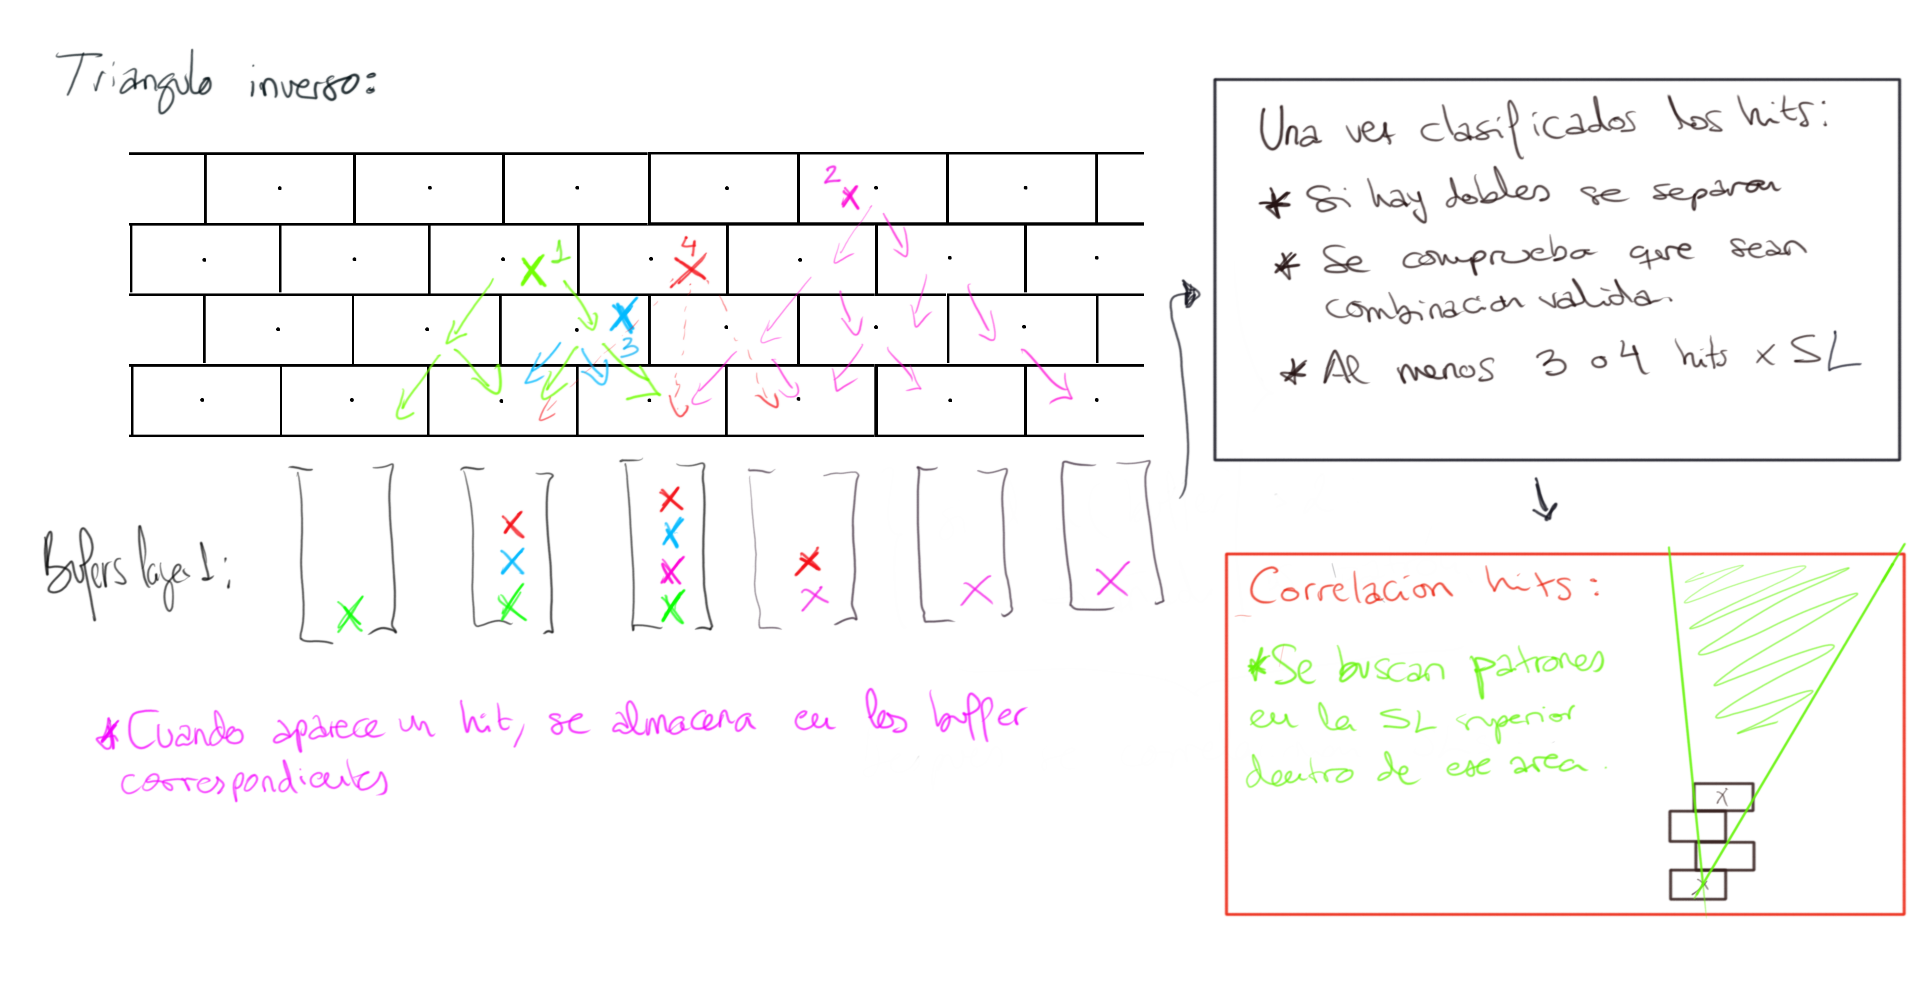 Triangulo inverso:
2
1
4
3
Bufers layer 1:
* Cuando aparece un hit, se almacena en los buffer
correspondientes
Una vez clasificados los hits:
* Si hay dobles se separan
* Se comprueba que sean
combinacion valida.
* Al menos 3 o 4 hits x SL
Correlacion hits:
* Se buscan patrones
en la SL superior
dentro de ese area.